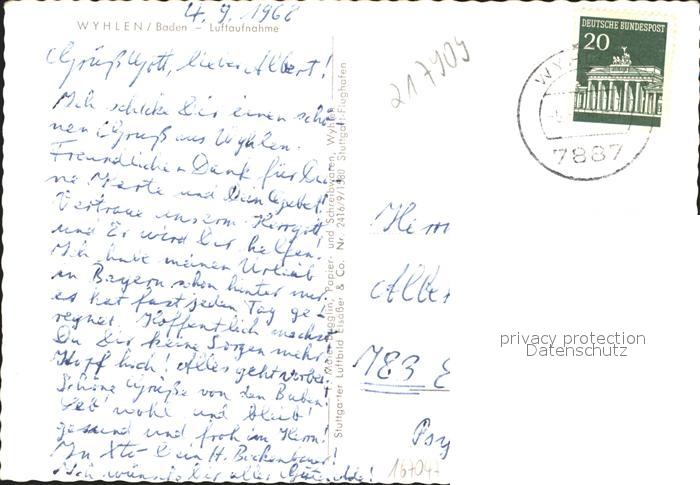 4.9.1968
WYHLEN / Baden – Luftaufnahme
Grüß Gott, lieber Albert!
Ich schicke Dir einen schö-
nen Gruß aus Wyhlen.
Freundlichen Dank für Dei-
ne Karte und Dein Gebet!
Vertraue unserm Herrgott
und Er wird Dir helfen!
Ich habe meinen Urlaub
in Bayern schon hinter mir.
es hat fast jeden Tag ge-
regnet. Hoffentlich machst
Du Dir keine Sorgen mehr!
Kopf hoch! Alles geht vorbei!
Schöne Grüße von den Buben!
Leb' wohl und bleib'
gesund und froh im Herrn!
In Xto Dein H.
Ich wünsch Dir alles Gute
Papier- und Schreibwaren, Wyhlen
Stuttgarter Luftbild Elsäßer & Co. Nr. 2416/9/1380 Stuttgart-Flughafen
217909
DEUTSCHE BUNDESPOST
20
WY
7887
Herrn
Albe
783 E
Psy
167047
privacy protection
Datenschutz